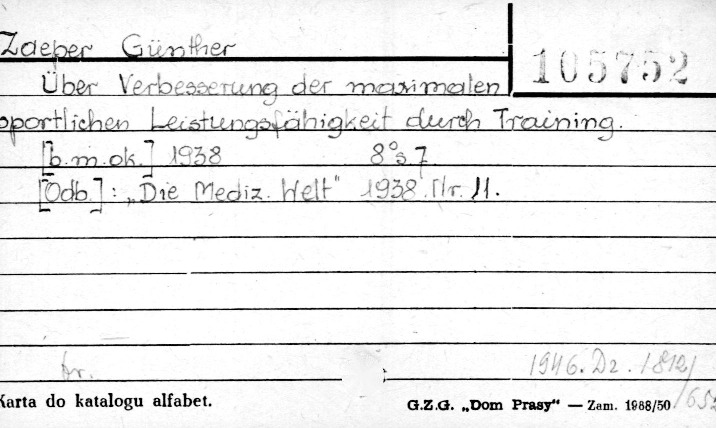 Zaeper Günther
105752
Über Verbesserung der maximalen
sportlichen Leistungsfähigkeit durch Training.
[b.m.ok.] 1938 8°s.7.
[Odb.]: „Die Mediz. Welt" 1938. Nr. 11.
1946. Dz. 1812/
Karta do katalogu alfabet.
G.Z.G. „Dom Prasy" — Zam. 1968/50